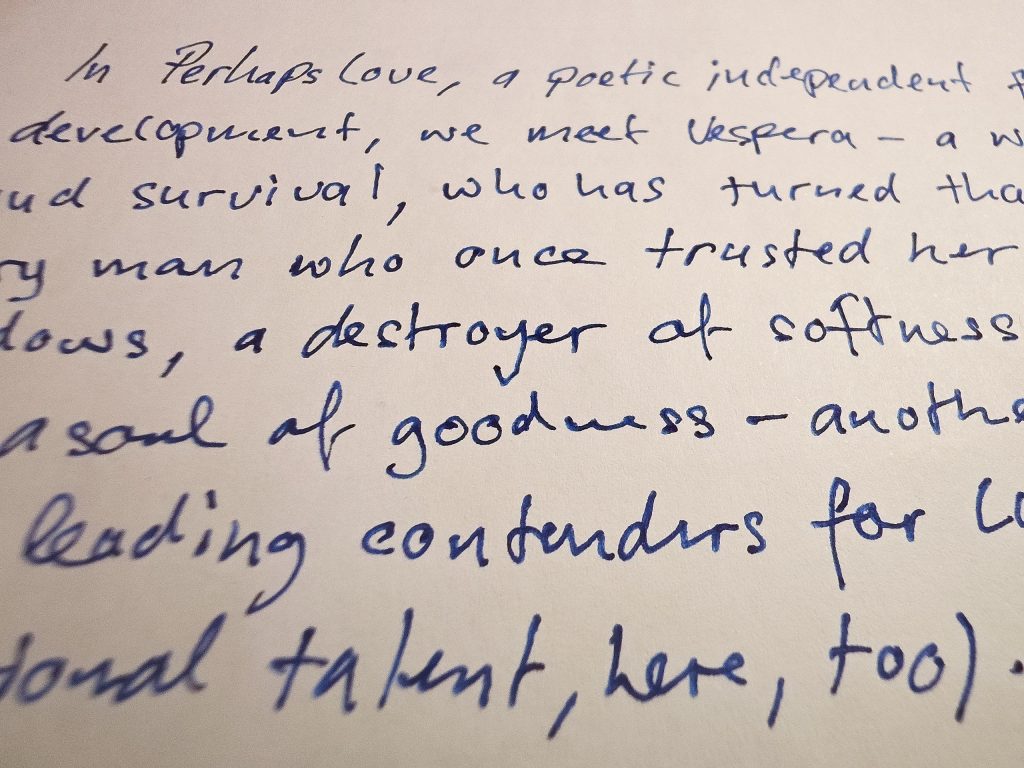 In Perhaps Love, a poetic independent f
development, we meet Vespera – a w
und survival, who has turned tha
ry man who once trusted her
dows, a destroyer of softness
a soul of goodness – anothe
leading contenders for Lo
tional talent, here, too).